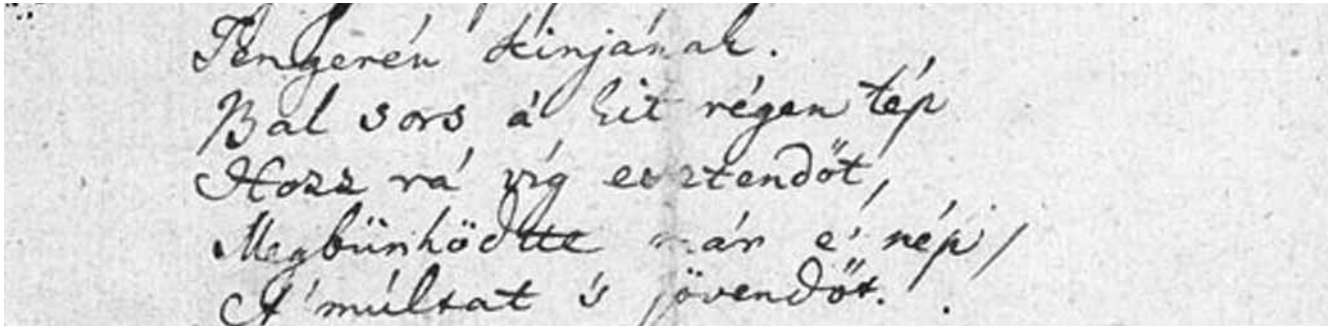 Tengerén kínjának.
Bal sors á kit régen tép
Hozz rá víg esztendőt,
Megbünhödtte már e' nép,
A' múltat 's jövendőt.